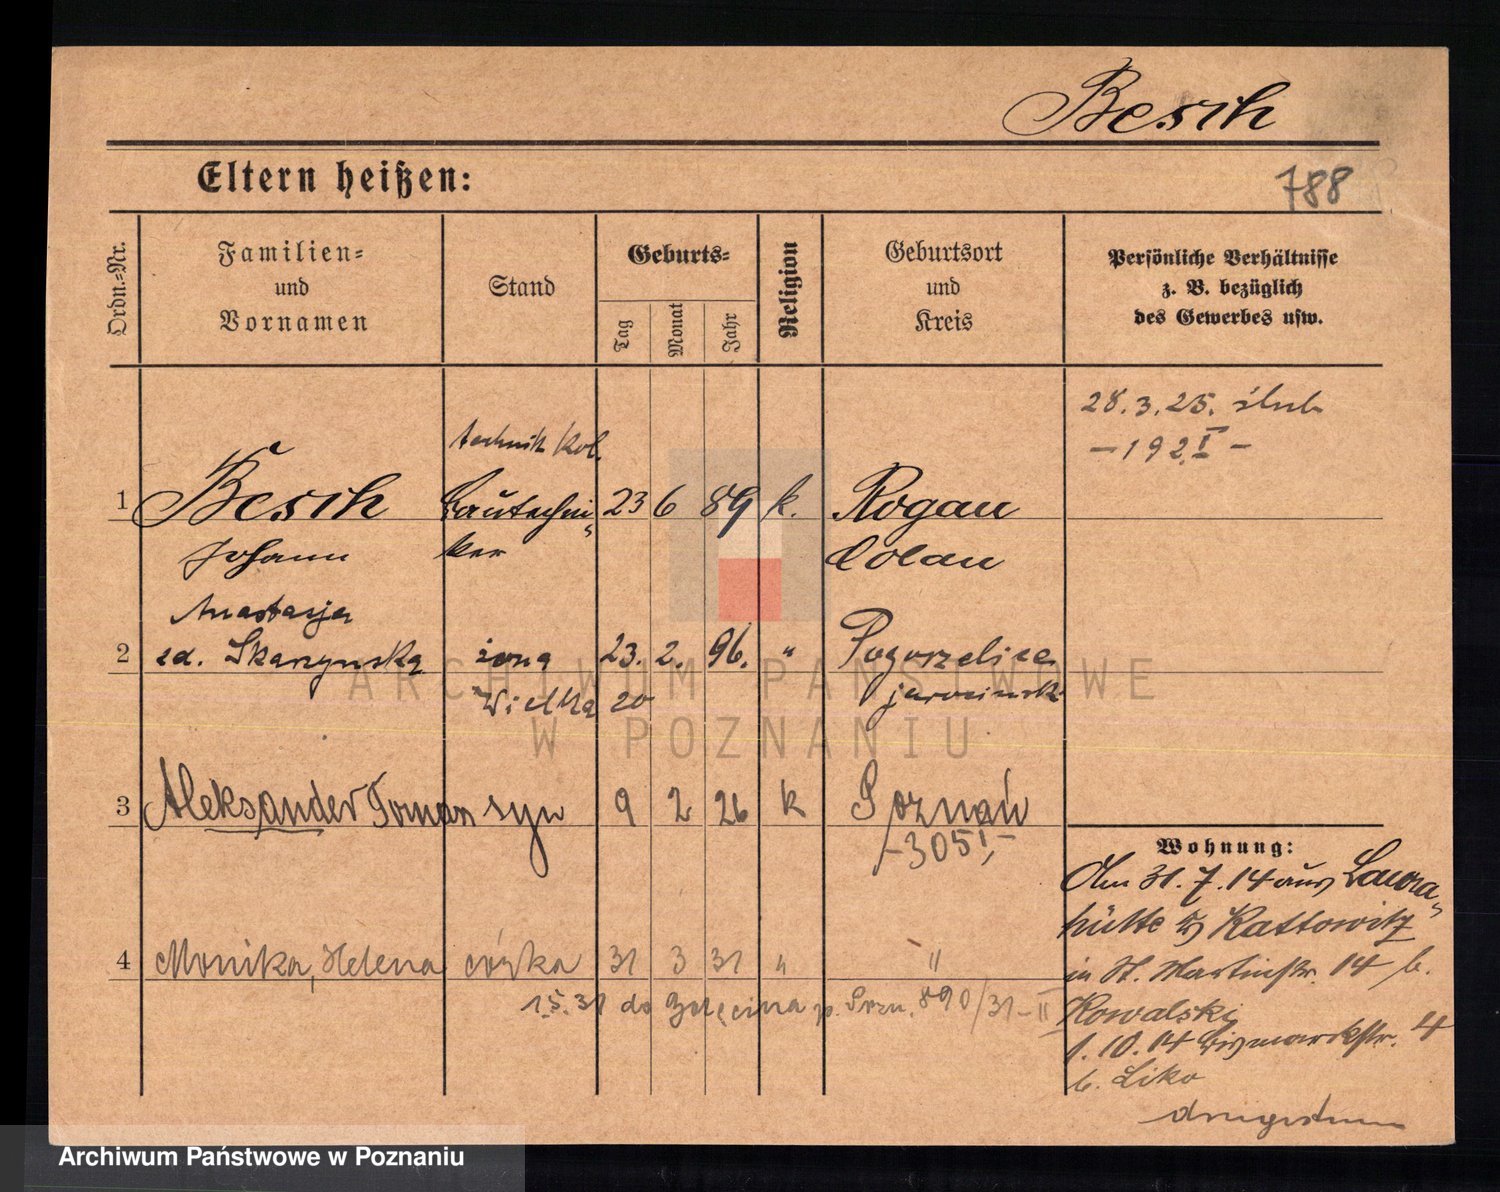 Besch
Eltern heißen:
788
Ordn.-Nr.
Familien-
und
Vornamen
Stand
Geburts-
Tag
Monat
Jahr
Religion
Geburtsort
und
Kreis
Persönliche Verhältnisse
z. B. bezüglich
des Gewerbes usw.
28.3.25. ślub
-192 I-
technik kol.
1 Besch Bautechni- 23 6 89 k. Rogau
Johann ker
Anastazja
2 Skarzynska żona 23. 2. 96. " Pogorzelice
Wielka 20 jarocinski
3 Aleksander Roman syn 9 2 26 k Poznań
-305 I,-
Wohnung:
Am 31.7.14 aus Laura-
hütte b/ Kattowitz
4 Monika, Helena córka 31 3 31 " "
in St. Martinstr. 14 b.
1.5.31 do 890/31-II
Kowalski
1.10.14 Bismarckstr. 4
b. Liko
ARCHIWUM PAŃSTWOWE
W POZNANIU
Archiwum Państwowe w Poznaniu